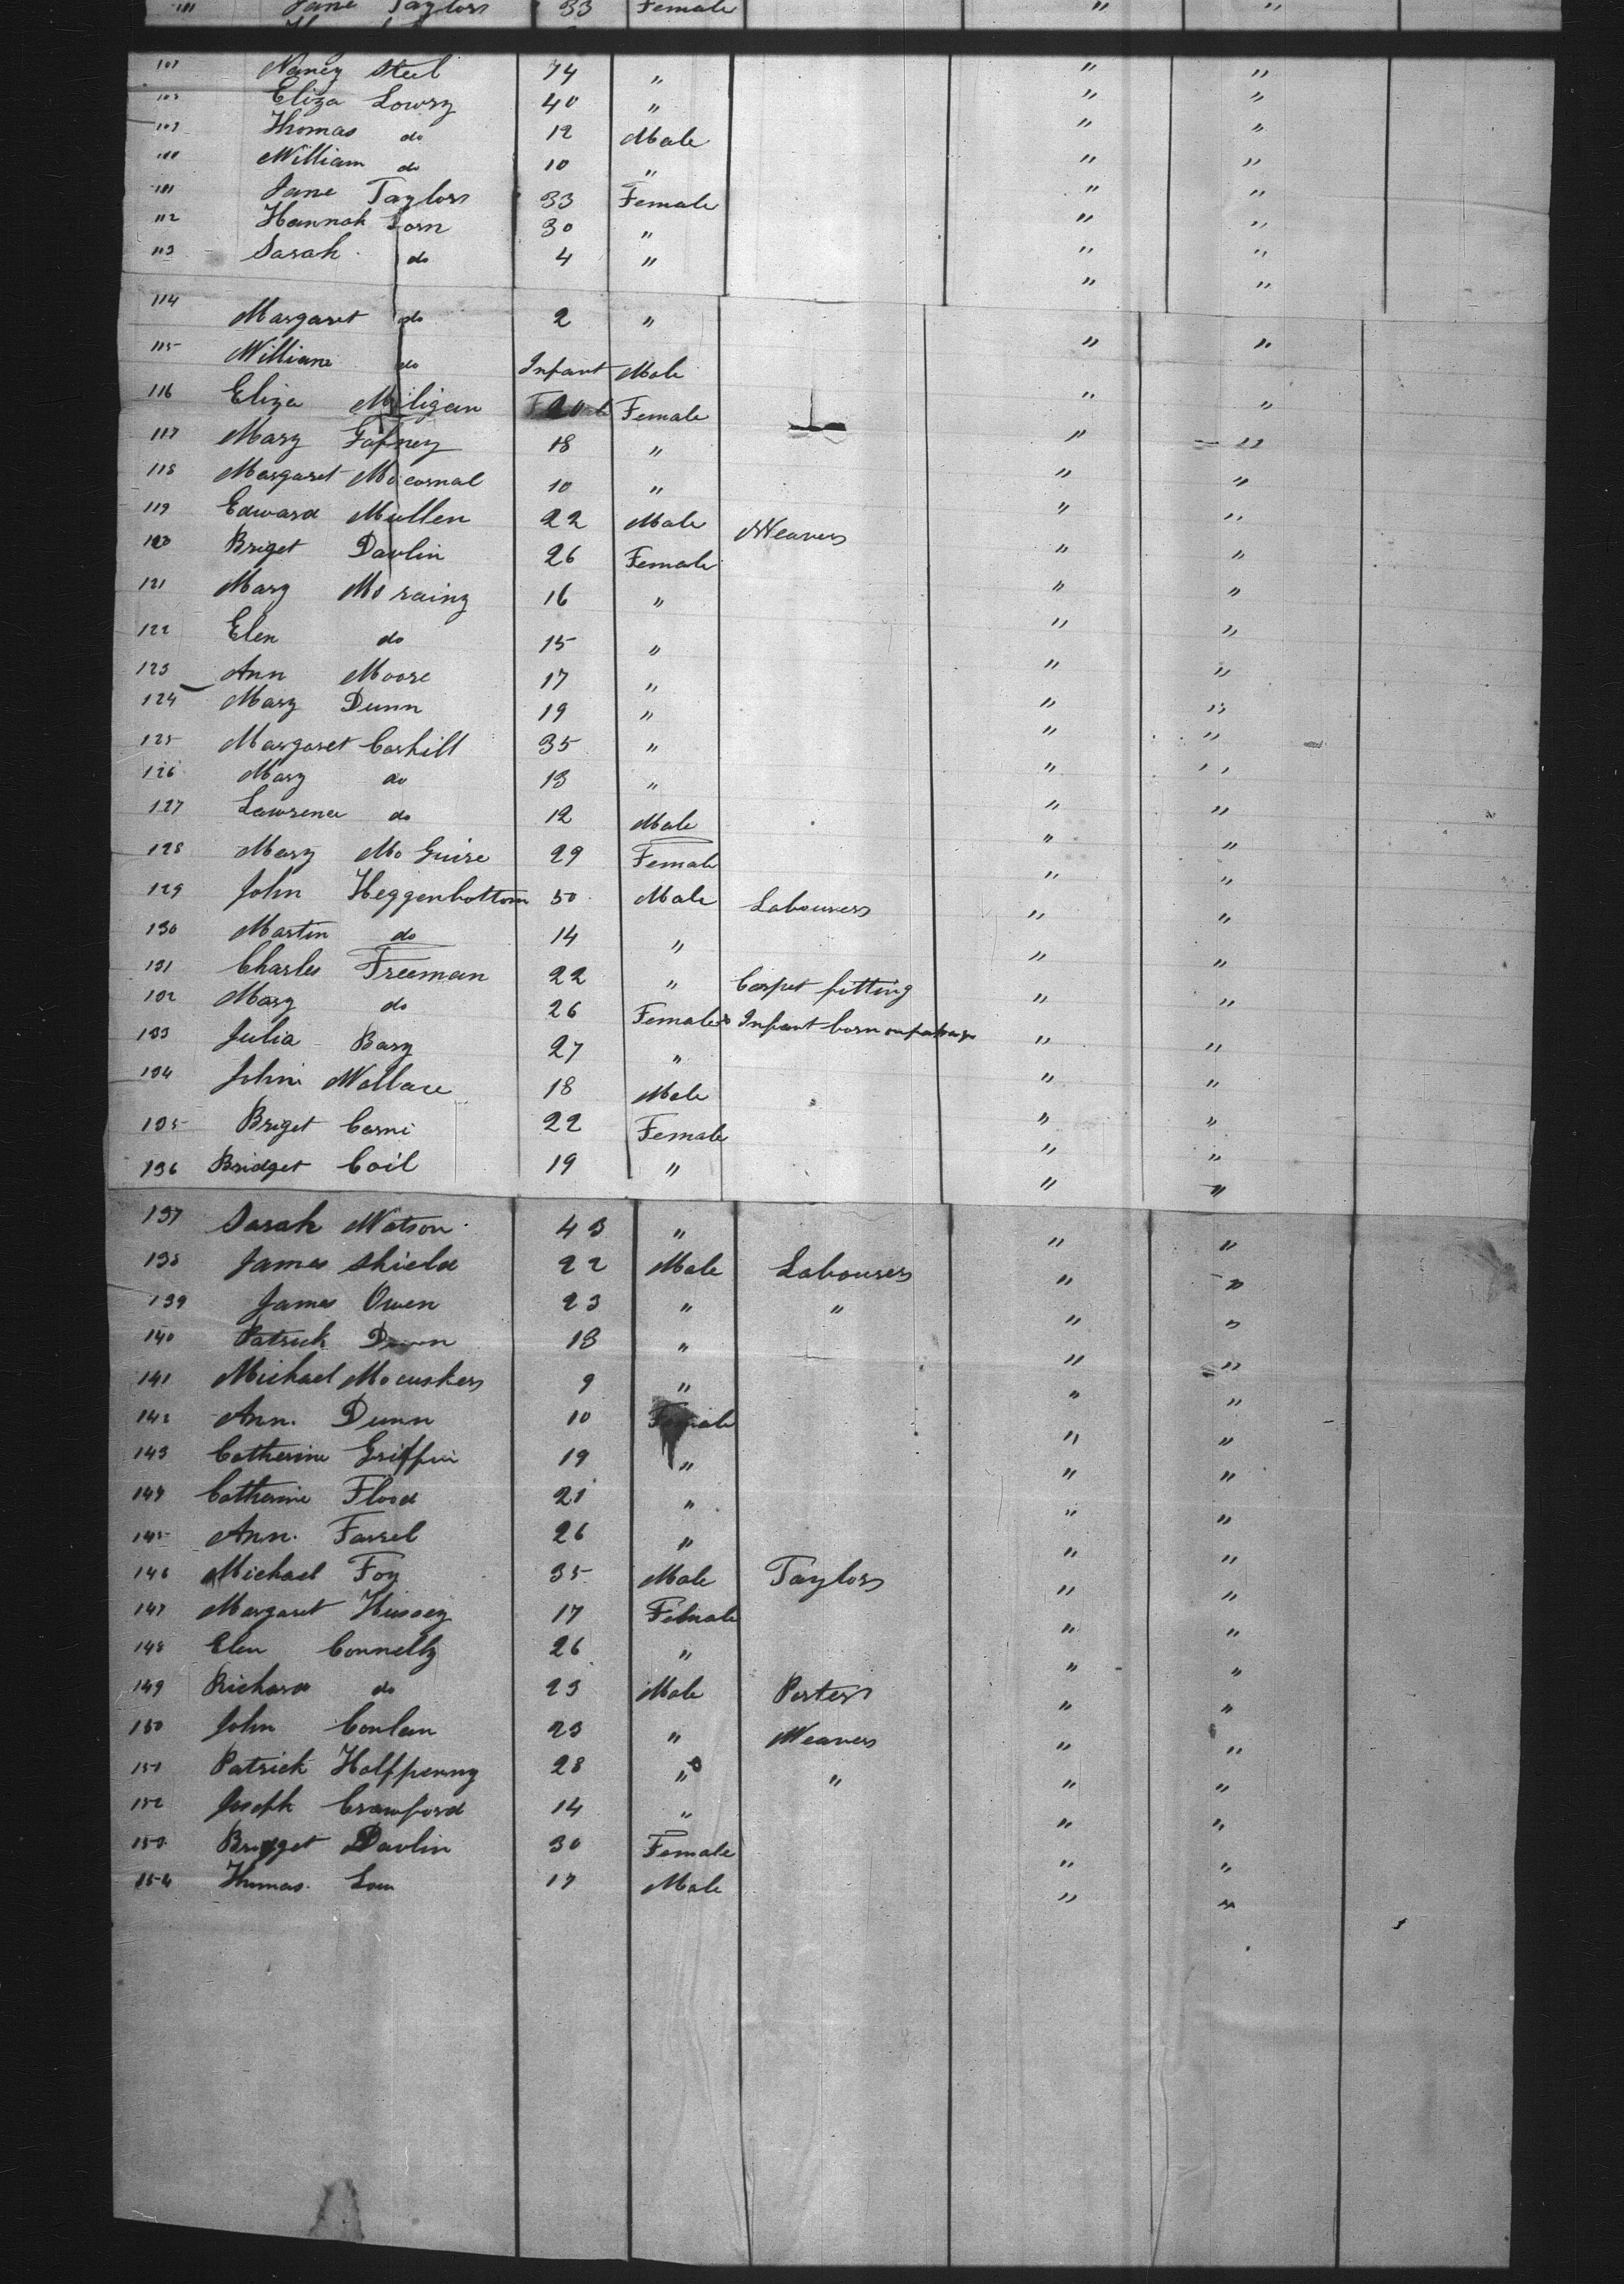 111 Jane Taylor 33 Female " "
107 Nancy Steel 74 " " "
108 Eliza Lowry 40 " " "
109 Thomas do 12 Male " "
110 William do 10 " " "
111 Jane Taylor 33 Female " "
112 Hannah 30 " " "
113 Sarah do 4 " " "
114 Margaret do 2 " " "
115 William do Infant Male " "
116 Eliza Miligan 20 Female " "
117 Mary Gafney 18 " " "
118 Margaret 10 " " "
119 Edward Mullen 22 Male Weaver " "
120 Briget Davlin 26 Female " "
121 Mary 16 " " "
122 Elen do 15 " " "
123 Ann Moore 17 " " "
124 Mary Dunn 19 " " "
125 Margaret Cashill 35 " " "
126 Mary do 13 " " "
127 Lawrence do 12 Male " "
128 Mary Mc Guire 29 Female " "
129 John Heggenbottom 50 Male Labourer " "
130 Martin do 14 " " "
131 Charles Freeman 22 " Carpet fitting " "
132 Mary do 26 Female & Infant born on passage " "
133 Julia Bary 27 " " "
134 John Wallace 18 Male " "
135 Briget Carni 22 Female " "
136 Bridget Coil 19 " " "
137 Sarah Watson 43 " " "
138 James Shield 22 Male Labourer " "
139 James Owen 23 " " " "
140 Patrick 13 " " "
141 Michael Mccusker 9 " " "
142 Ann Dunn 10 Female " "
143 Catherine Griffin 19 " " "
144 Catherine Flood 21 " " "
145 Ann Farrel 26 " " "
146 Michael Foy 35 Male Taylor " "
147 Margaret Hussey 17 Female " "
148 Elen Connelly 26 " " "
149 Richard do 23 Male Porter " "
150 John Conlan 23 " Weaver " "
151 Patrick Halfpenny 28 " " " "
152 Joseph Crawford 14 " " "
153 Bridget Davlin 30 Female " "
154 Thomas 17 Male " "